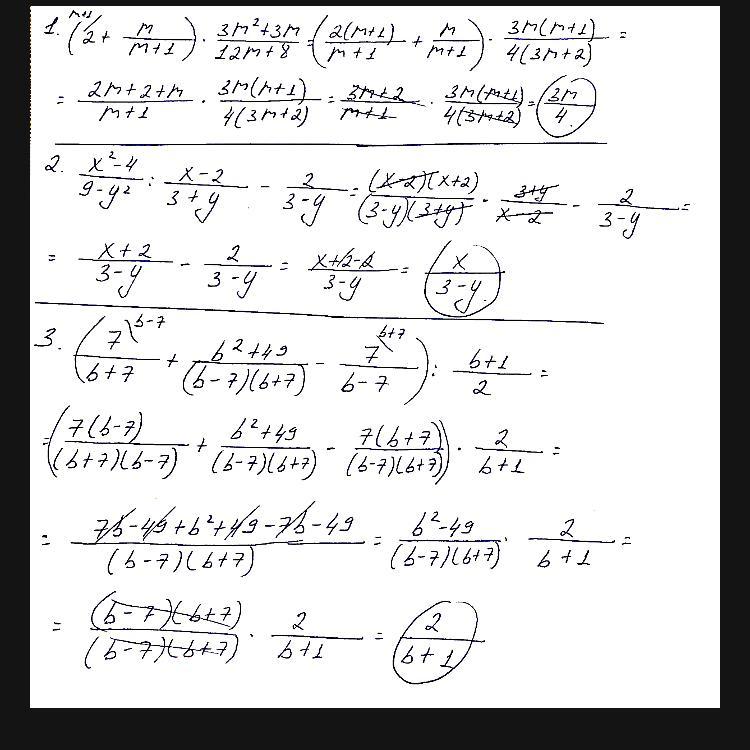 1. (2^(m+1) + m/(m+1)) · (3m²+3m)/(12m+8) = (2(m+1)/(m+1) + m/(m+1)) · 3m(m+1)/(4(3m+2)) =
= (2m+2+m)/(m+1) · 3m(m+1)/(4(3m+2)) = (3m+2)/(m+1) · 3m(m+1)/(4(3m+2)) = 3m/4
2. (x²-4)/(9-y²) : (x-2)/(3+y) - 2/(3-y) = (x-2)(x+2)/((3-y)(3+y)) · (3+y)/(x-2) - 2/(3-y) =
= (x+2)/(3-y) - 2/(3-y) = (x+2-2)/(3-y) = x/(3-y)
3. (7^(b-7)/(b+7) + (b²+49)/((b-7)(b+7)) - 7^(b+7)/(b-7)) : (b+1)/2 =
= (7(b-7)/((b+7)(b-7)) + (b²+49)/((b-7)(b+7)) - 7(b+7)/((b-7)(b+7))) · 2/(b+1) =
= (7b-49+b²+49-7b-49)/((b-7)(b+7)) = (b²-49)/((b-7)(b+7)) · 2/(b+1) =
= (b-7)(b+7)/((b-7)(b+7)) · 2/(b+1) = 2/(b+1)